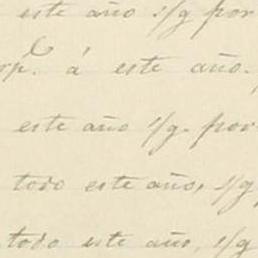 este año s/g por
á este año.
este año s/g. por
todo este año, s/g
todo este año, s/g